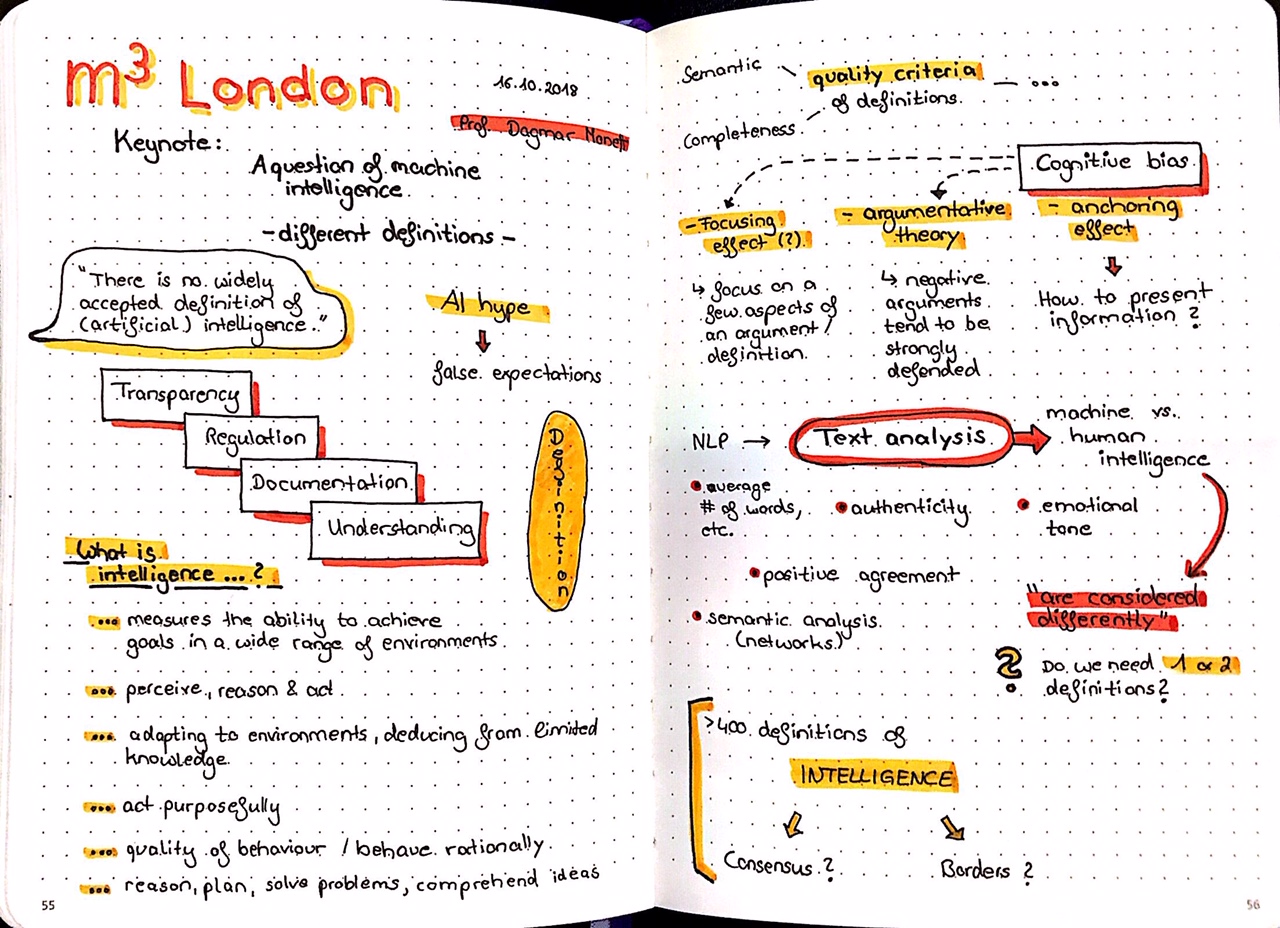 m³ London
16.10.2018
Prof. Dagmar
Keynote:
A question of machine
intelligence
- different definitions -
"There is no widely
accepted definition of
(artificial) intelligence."
AI hype
false expectations
Transparency
Regulation
Documentation
Understanding
Definition
What is
intelligence ... ?
... measures the ability to achieve
goals in a wide range of environments
... perceive, reason & act
... adapting to environments, deducing from limited
knowledge
... act purposefully
... quality of behaviour / behave rationally
... reason, plan, solve problems, comprehend ideas
55
Semantic
quality criteria — ...
of definitions
Completeness
Cognitive bias
- Focusing
effect (?)
- argumentative
theory
- anchoring
effect
↳ focus on a
few aspects of
an argument/
definition
↳ negative
arguments
tend to be
strongly
defended
How to present
information?
NLP → Text analysis
machine vs.
human
intelligence
• average
# of words,
etc.
• authenticity
• emotional
tone
• positive agreement
• semantic analysis
(networks)
"are considered
differently"
? Do we need 1 or 2
definitions?
>400 definitions of
INTELLIGENCE
Consensus?
Borders?
56